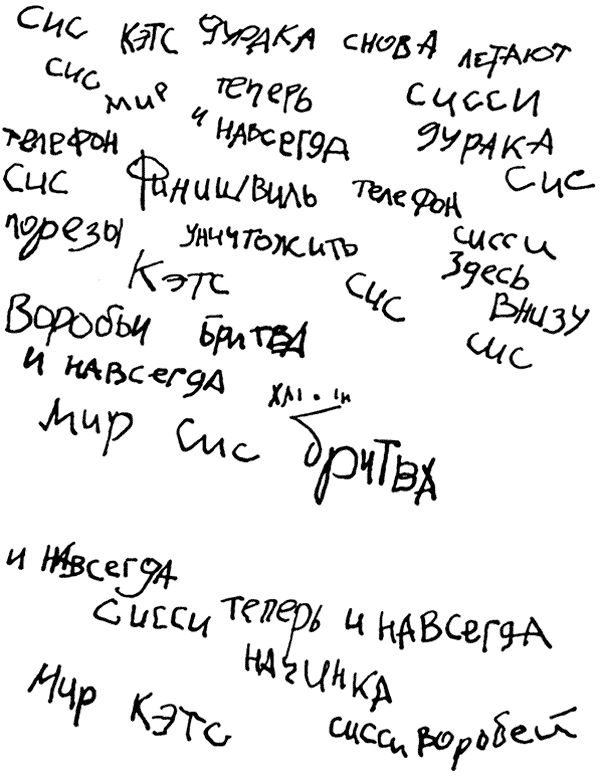 сис кэтс дурака снова летают
сис мир теперь сисси
телефон и навсегда дурака
сис Финишвиль телефон сис
порезы уничтожить сисси
Кэтс сис Здесь
Воробьи бритва внизу
и навсегда сис
мир сис бритва
и навсегда
сисси теперь и навсегда
начинка
мир кэтс сисси воробей